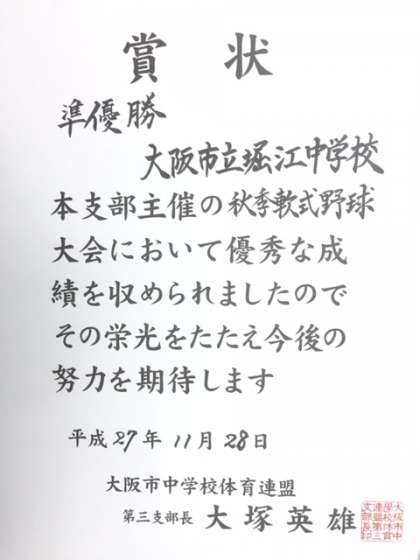 賞状
準優勝
大阪市立堀江中学校
本支部主催の秋季軟式野球
大会において優秀な成
績を収められましたので
その栄光をたたえ今後の
努力を期待します
平成27年11月28日
大阪市中学校体育連盟
第三支部長 大塚英雄